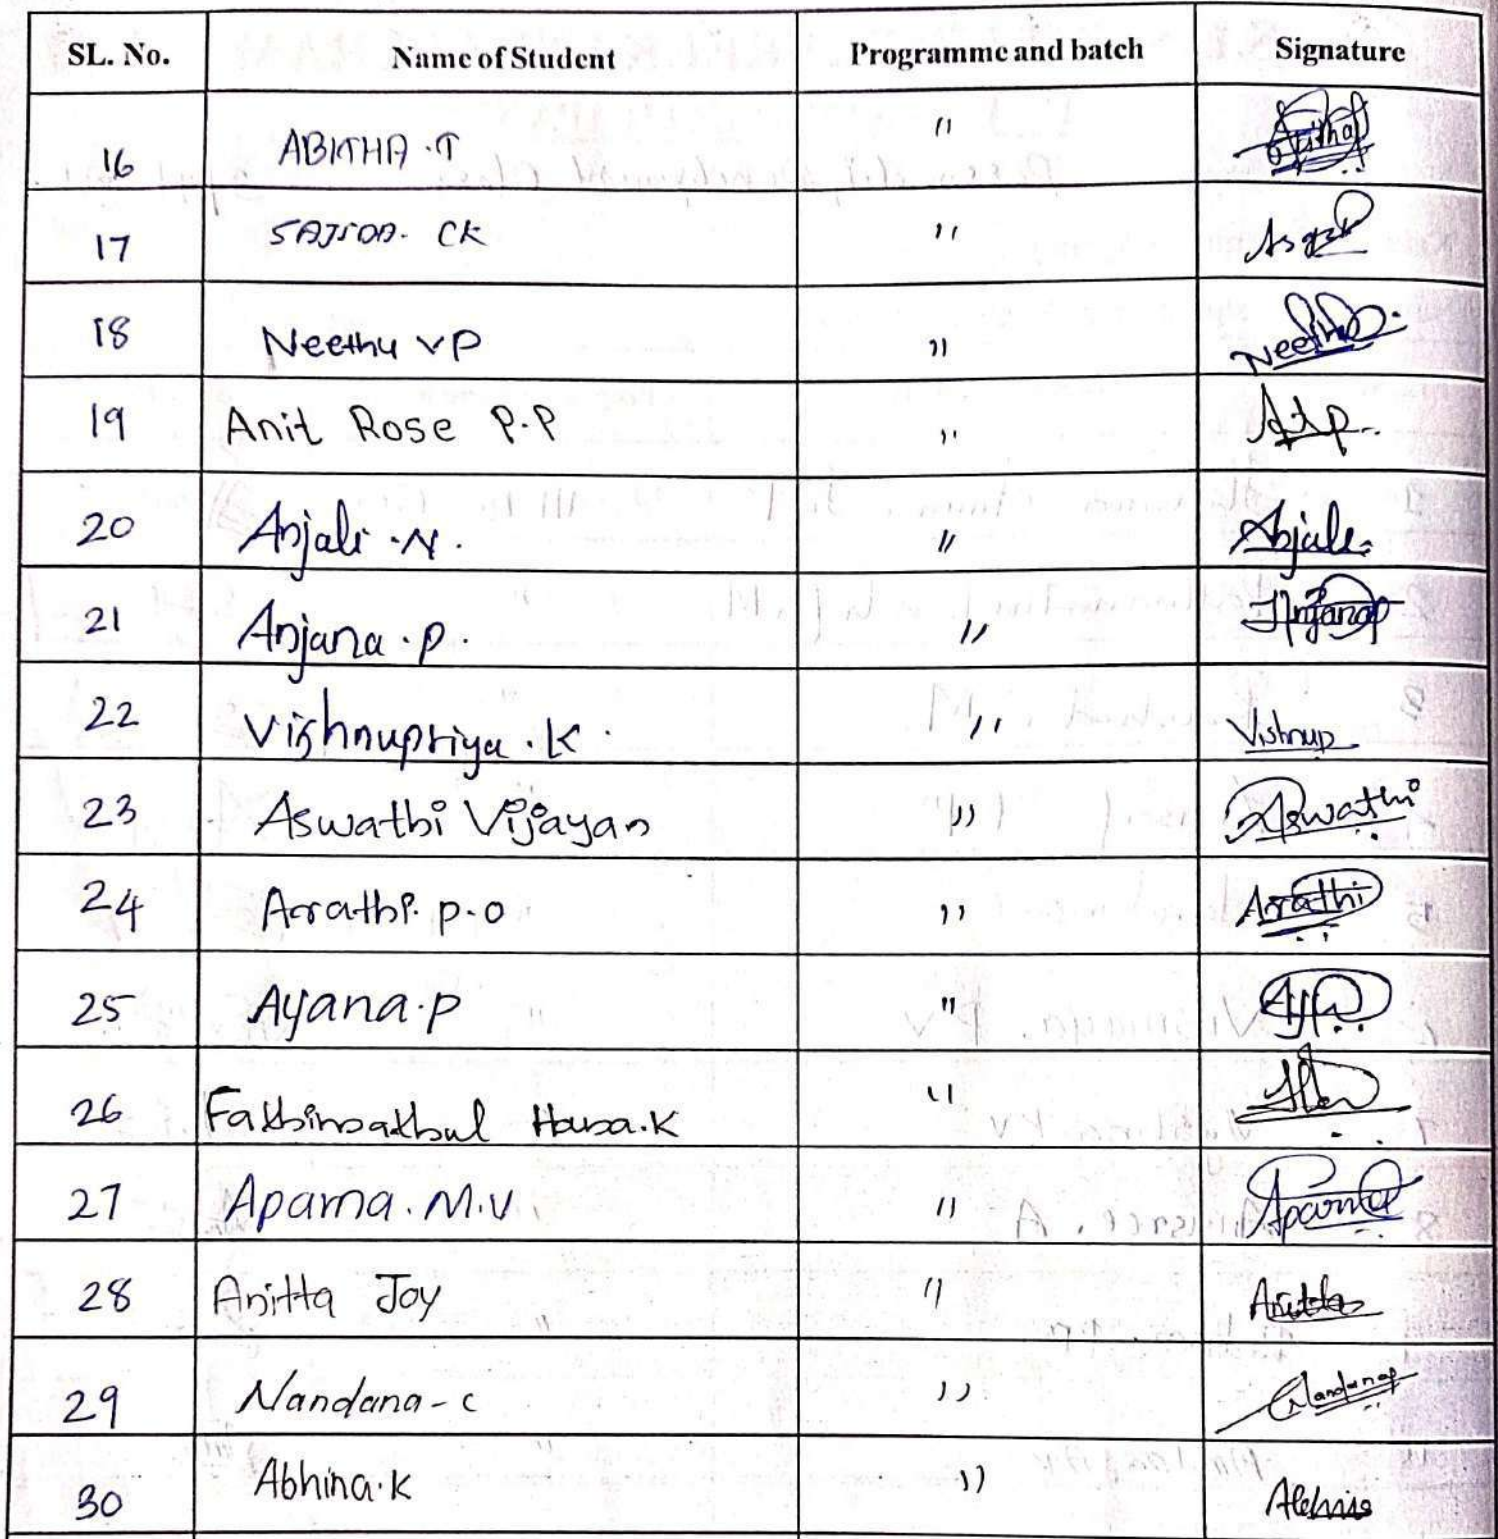 SL. No. Name of Student Programme and batch Signature
16 ABITHA .T " 
17 SAJNA. CK "
18 Neethu VP " Neethu
19 Anit Rose P.P "
20 Anjali .N. " Anjali
21 Anjana .P. " Anjana
22 Vishnupriya .K. " Vishnup
23 Aswathi Vijayan " Aswathi
24 Arrathi. P.O " Arrathi
25 Ayana.P "
26 Fathimathul Husna.K "
27 Aparna. M.V " Aparna
28 Anitta Joy " Anitta
29 Nandana - C " Nandana
30 Abhina.K "